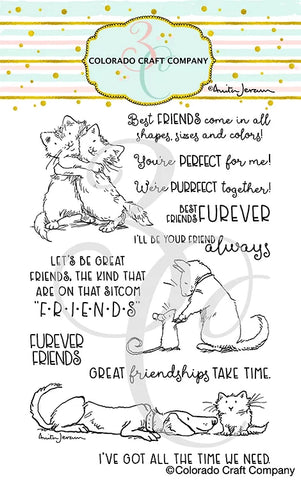 3C
COLORADO CRAFT COMPANY
©Anita Jeram
Best FRIENDS come in all
shapes, sizes and colors!
You're PERFECT for me!
We're PURRFECT together!
BEST
FRIENDS FUREVER
I'LL BE YOUR FRIEND always
LET'S BE GREAT
FRIENDS, THE KIND THAT
ARE ON THAT SITCOM
"F·R·I·E·N·D·S"
FUREVER
FRIENDS
GREAT friendships TAKE TIME.
Anita Jeram
I'VE GOT ALL THE TIME WE NEED.
©Colorado Craft Company